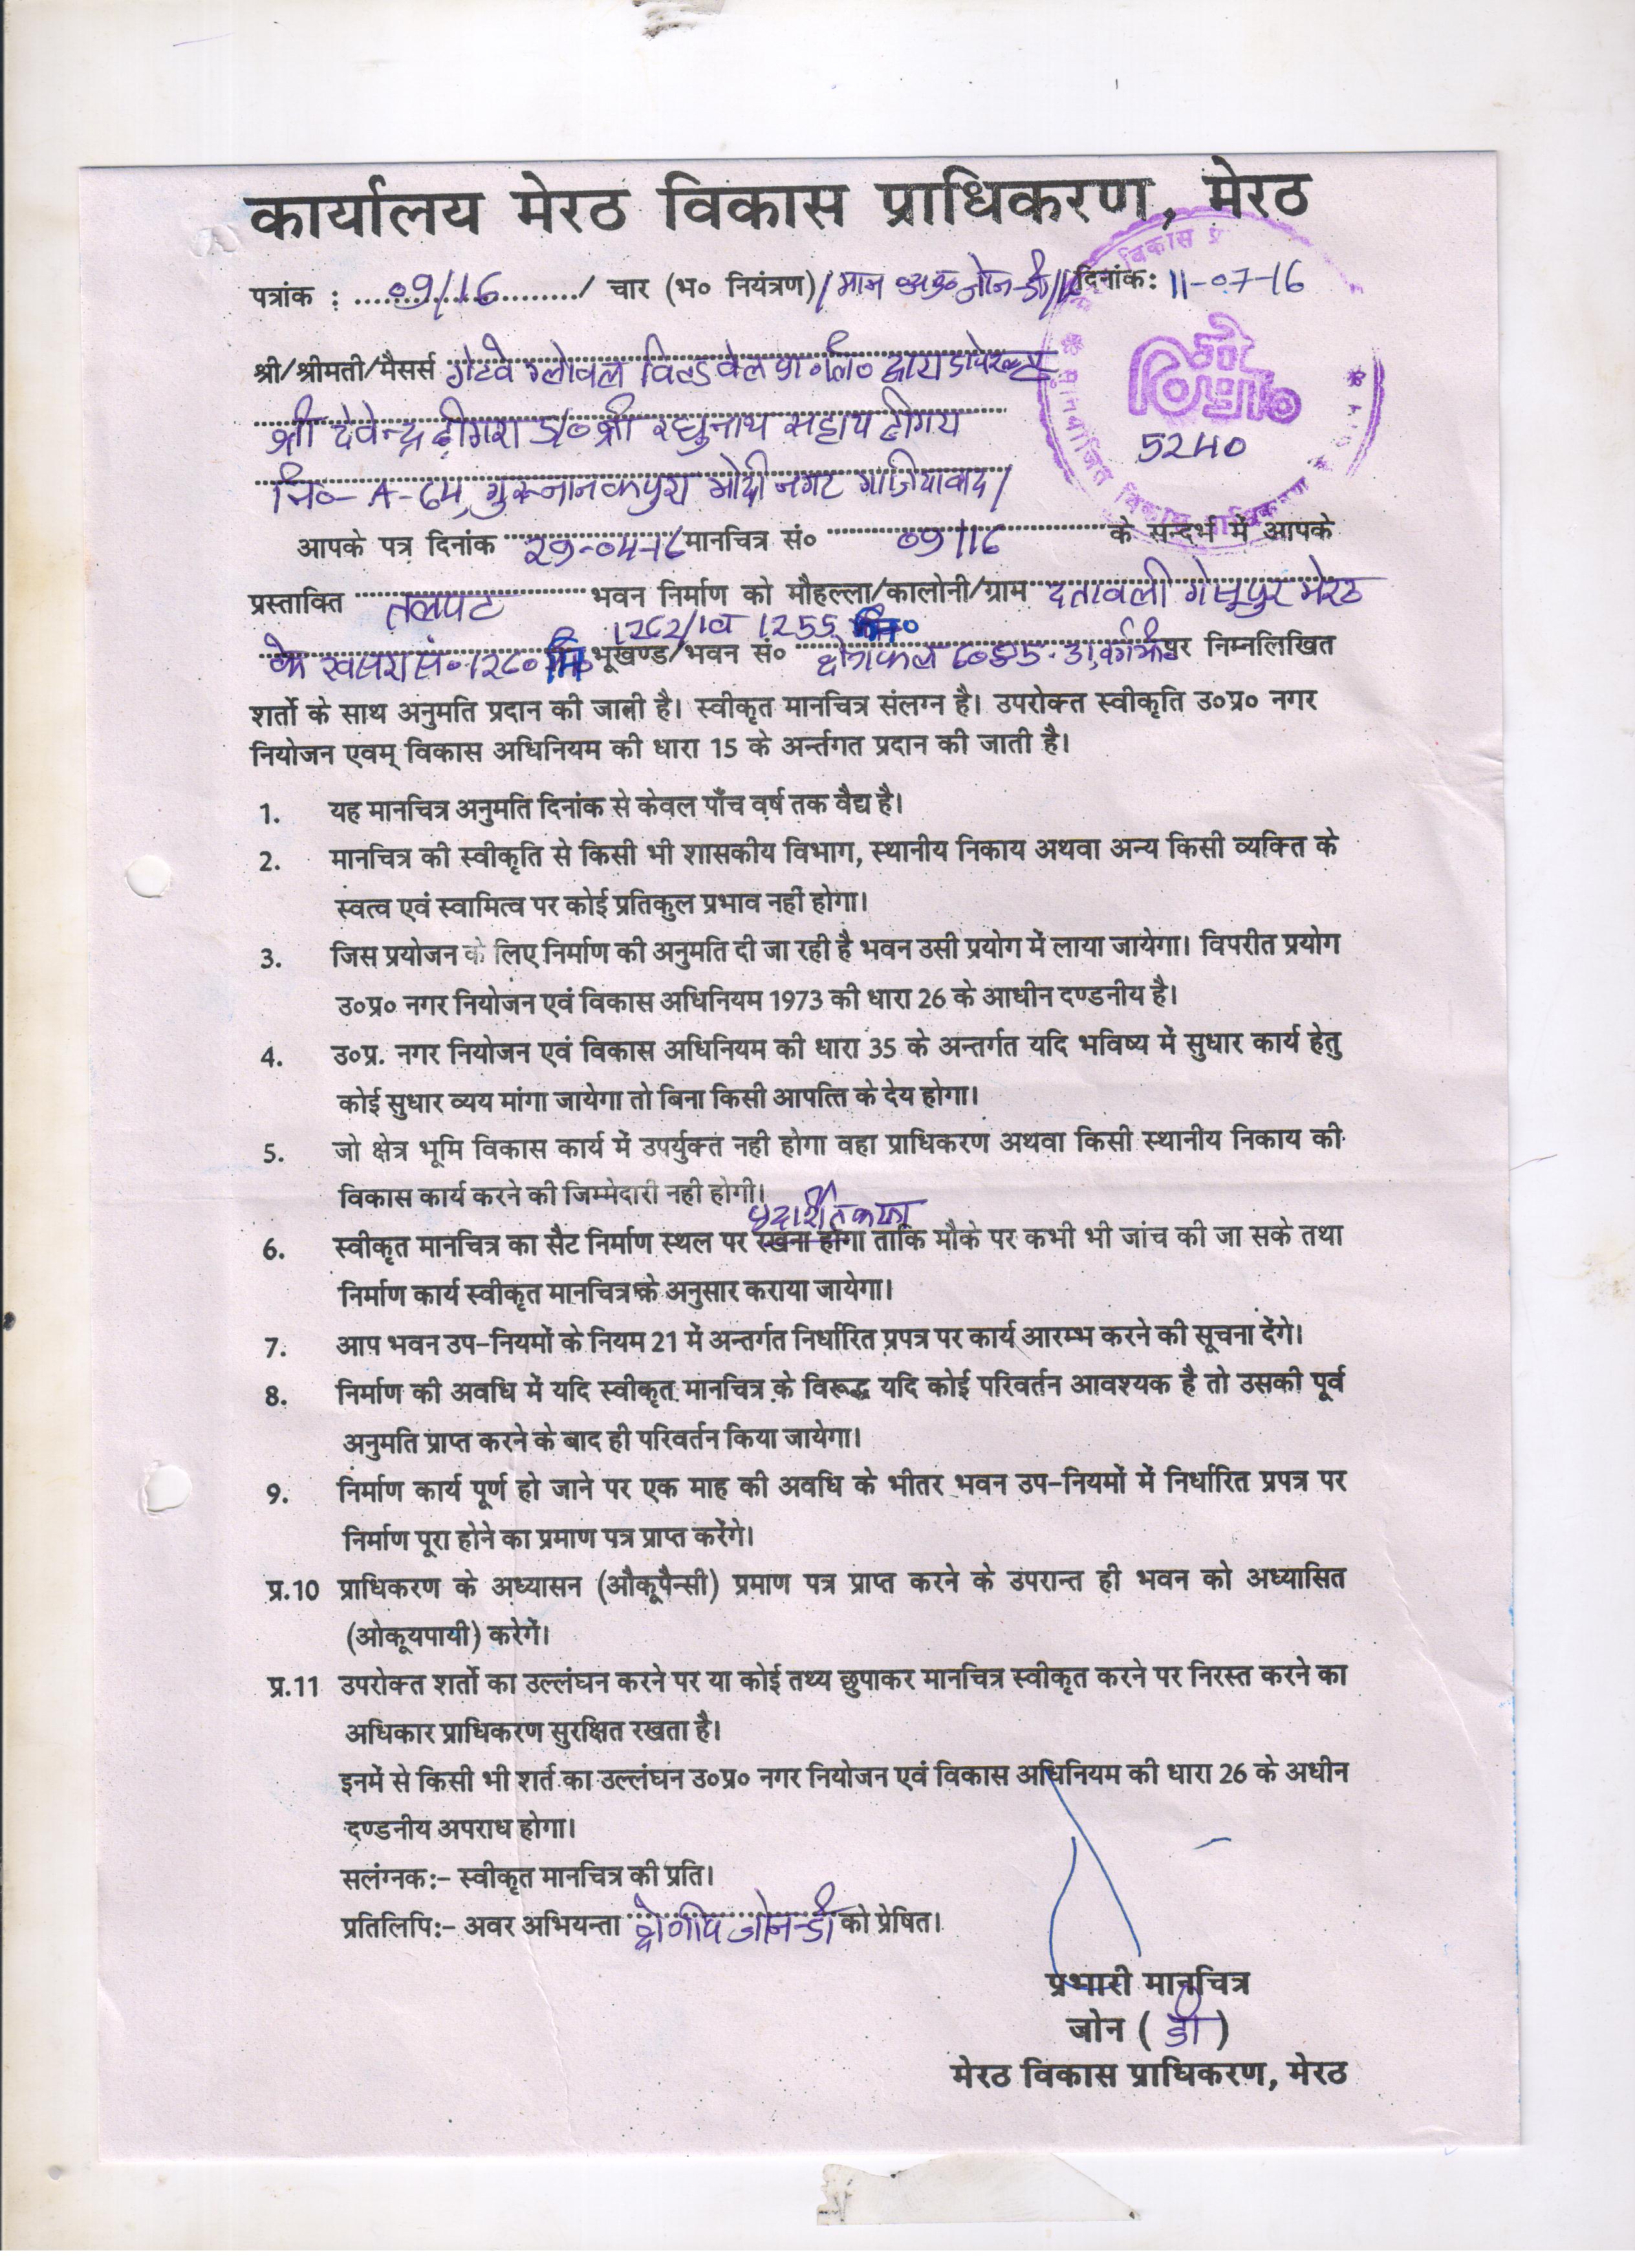 कार्यालय मेरठ विकास प्राधिकरण, मेरठ
पत्रांक : 09/16 / चार (भ० नियंत्रण)/ मान जोन-डी// दिनांक: 11-07-16
श्री/श्रीमती/मैसर्स गेटवे ग्लोबल विल्डवेल प्रा०लि० द्वारा
श्री देवेन्द्र ढींगरा S/o श्री रघुनाथ सहाय ढींगरा
नि०- A-64, गुरूनानकपुरा मोदीनगर गाजियाबाद/
5240
आपके पत्र दिनांक 29-04-16 मानचित्र सं० 09/16 के सन्दर्भ में आपके
प्रस्तावित तलपट भवन निर्माण को मौहल्ला/कालोनी/ग्राम दतावली गेसूपुर मेरठ
1262/1व 1255 मि०
के खसरा सं०-1260 मि० भूखण्ड/भवन सं० क्षेत्रफल पर निम्नलिखित
शर्तो के साथ अनुमति प्रदान की जाती है। स्वीकृत मानचित्र संलग्न है। उपरोक्त स्वीकृति उ०प्र० नगर
नियोजन एवम् विकास अधिनियम की धारा 15 के अर्न्तगत प्रदान की जाती है।
1. यह मानचित्र अनुमति दिनांक से केवल पाँच वर्ष तक वैद्य है।
2. मानचित्र की स्वीकृति से किसी भी शासकीय विभाग, स्थानीय निकाय अथवा अन्य किसी व्यक्ति के
स्वत्व एवं स्वामित्व पर कोई प्रतिकुल प्रभाव नहीं होगा।
3. जिस प्रयोजन के लिए निर्माण की अनुमति दी जा रही है भवन उसी प्रयोग में लाया जायेगा। विपरीत प्रयोग
उ०प्र० नगर नियोजन एवं विकास अधिनियम 1973 की धारा 26 के आधीन दण्डनीय है।
4. उ०प्र. नगर नियोजन एवं विकास अधिनियम की धारा 35 के अन्तर्गत यदि भविष्य में सुधार कार्य हेतु
कोई सुधार व्यय मांगा जायेगा तो बिना किसी आपत्ति के देय होगा।
5. जो क्षेत्र भूमि विकास कार्य में उपर्युक्त नही होगा वहा प्राधिकरण अथवा किसी स्थानीय निकाय की
विकास कार्य करने की जिम्मेदारी नही होगी।
प्रदर्शित करना
6. स्वीकृत मानचित्र का सैट निर्माण स्थल पर रखना होगा ताकि मौके पर कभी भी जांच की जा सके तथा
निर्माण कार्य स्वीकृत मानचित्र के अनुसार कराया जायेगा।
7. आप भवन उप-नियमों के नियम 21 में अन्तर्गत निर्धारित प्रपत्र पर कार्य आरम्भ करने की सूचना देंगे।
8. निर्माण की अवधि में यदि स्वीकृत मानचित्र के विरूद्ध यदि कोई परिवर्तन आवश्यक है तो उसकी पूर्व
अनुमति प्राप्त करने के बाद ही परिवर्तन किया जायेगा।
9. निर्माण कार्य पूर्ण हो जाने पर एक माह की अवधि के भीतर भवन उप-नियमों में निर्धारित प्रपत्र पर
निर्माण पूरा होने का प्रमाण पत्र प्राप्त करेंगे।
प्र.10 प्राधिकरण के अध्यासन (औकूपैन्सी) प्रमाण पत्र प्राप्त करने के उपरान्त ही भवन को अध्यासित
(ओकूयपायी) करेगें।
प्र.11 उपरोक्त शर्तो का उल्लंघन करने पर या कोई तथ्य छुपाकर मानचित्र स्वीकृत करने पर निरस्त करने का
अधिकार प्राधिकरण सुरक्षित रखता है।
इनमें से किसी भी शर्त का उल्लंघन उ०प्र० नगर नियोजन एवं विकास अधिनियम की धारा 26 के अधीन
दण्डनीय अपराध होगा।
सलंग्नक:- स्वीकृत मानचित्र की प्रति।
प्रतिलिपि:- अवर अभियन्ता क्षेत्रीय जोन-डी को प्रेषित।
प्रभारी मानचित्र
जोन ( डी )
मेरठ विकास प्राधिकरण, मेरठ